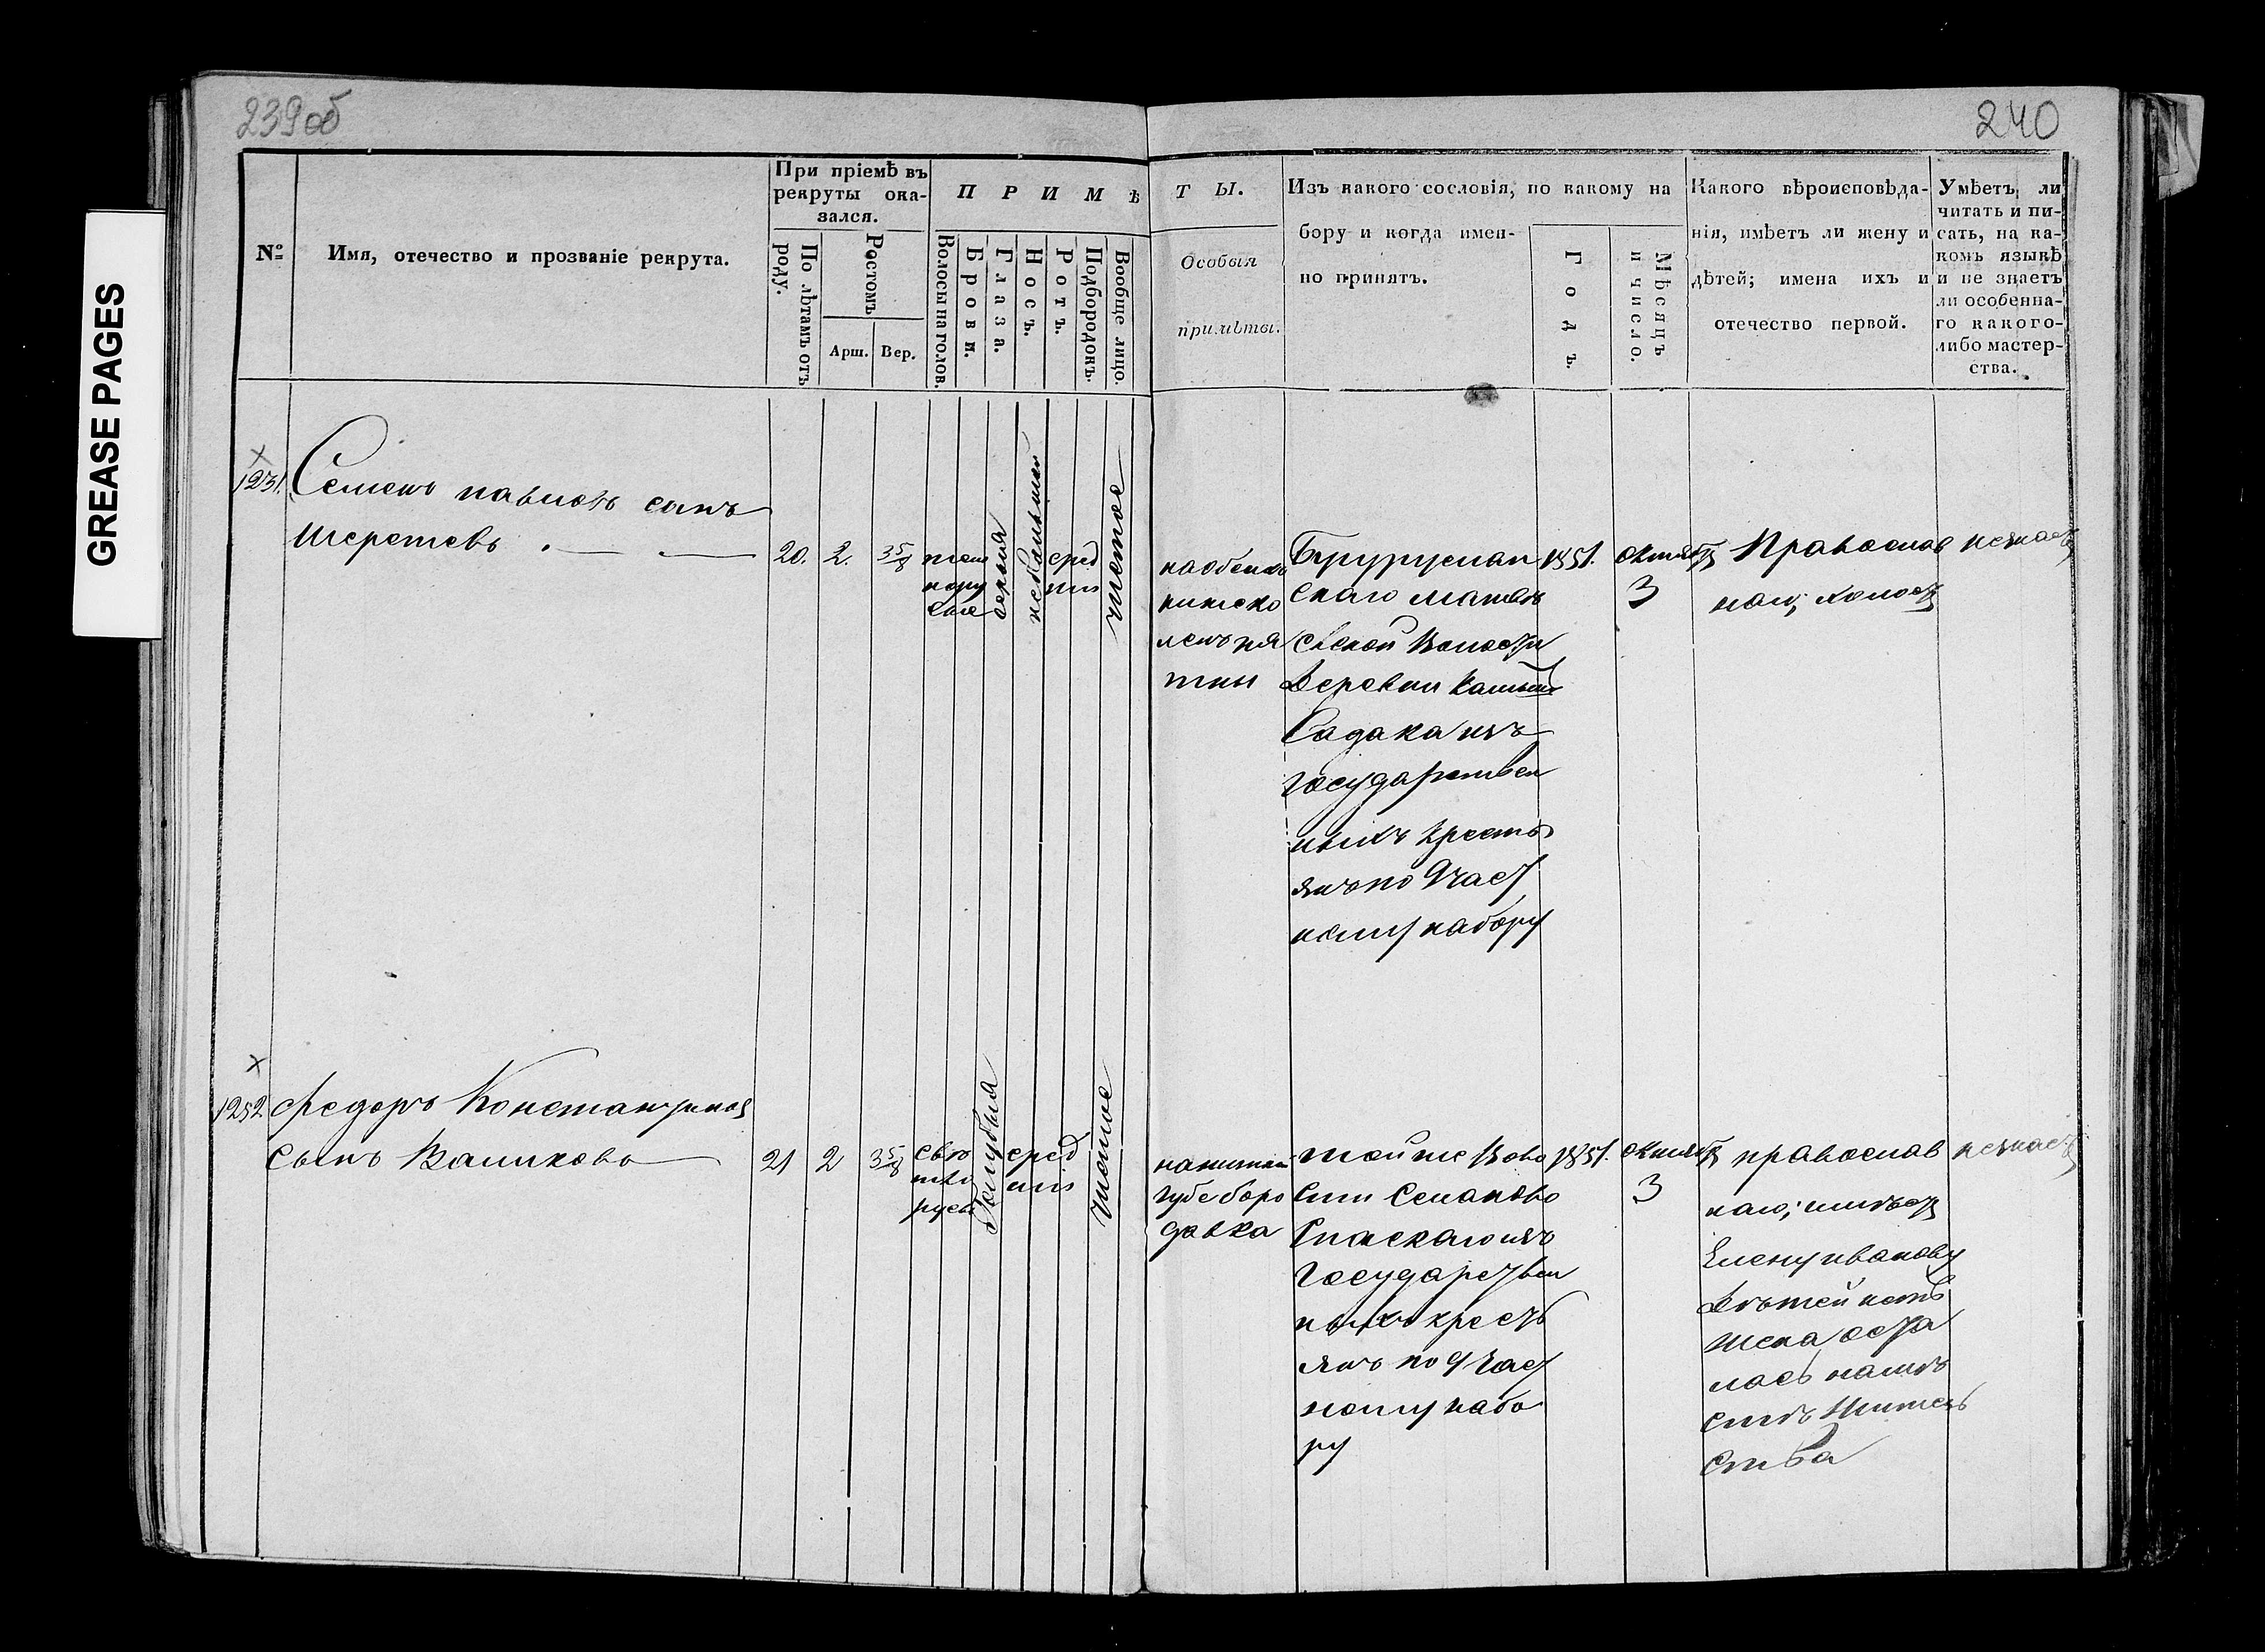 GREASE PAGES
239об
240
№
Имя, отечество и прозваніе рекрута.
При пріемѣ въ
рекруты ока-
зался.
По лѣтамъ отъ
роду.
Ростомъ
Арш.
Вер.
П Р И М Ѣ
Волосы на голов.
Брови.
Глаза.
Носъ.
Ротъ.
Подбородокъ.
Вообще лицо.
Т Ы.
Особыя
примѣты.
Изъ какого сословія, по какому на
бору и когда имен-
но принятъ.
Годъ.
Мѣсяцъ
и число.
Какого вѣроисповѣда-
нія, имѣетъ ли жену и
дѣтей; имена ихъ и
отечество первой.
Умѣетъ, ли
читать и пи-
сать, на ка-
комъ языкѣ
и не знаетъ
ли особенна-
го какого-
либо мастер-
ства.
Семенъ павловъ сынъ
20.
2.
3 5/8
тем
нору
сые
сред
ніи
чистое
пя
тны
скаго
ской Волости
Деревни
Садака изъ
государствен
ныхъ кресть
янъ по 9 част
ному набору
1851.
октяб
3
Православ
наго; холост
незнает
1252
Федоръ Константинов
сынъ Валиковъ
21
2
3 5/8
свѣ
тло
русы
Голубыя
сред
ніи
чистое
губе боро
давка
тойже Воло
сти Села
Спаскаго изъ
Государствен
ныхъ кресть
янъ по 9 част
ному набо
ру
1851.
октяб
3
православ
наго; имѣет
Елену иванову
Дѣтей нетъ
жена оста
лась намѣ
стѣ жител
ства
незнает